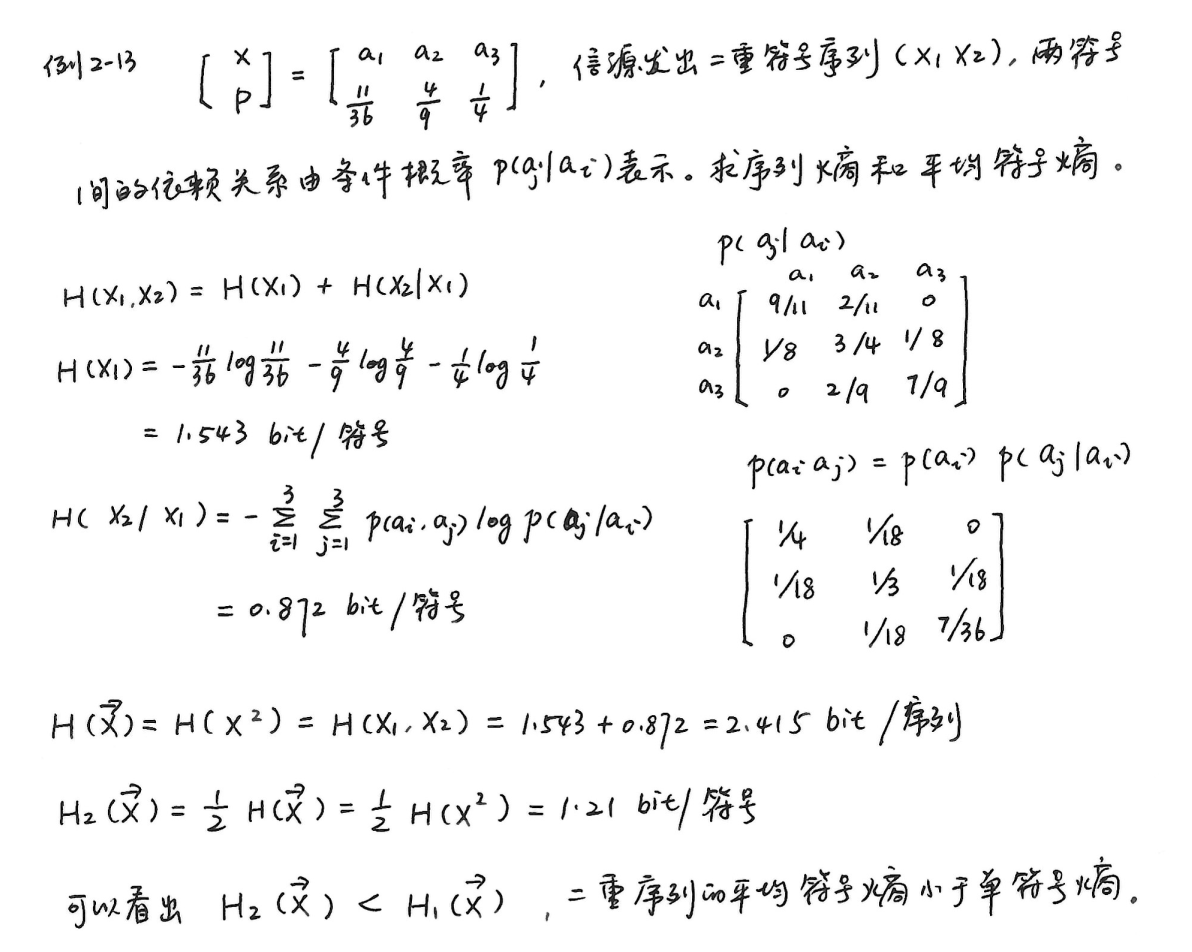 例2-13 [X P] = [a₁ a₂ a₃ 11/36 4/9 1/4], 信源发出二重符号序列(X₁X₂), 两符号
间的依赖关系由条件概率 p(aⱼ|aᵢ)表示。求序列熵和平均符号熵。
p(aⱼ|aᵢ)
a₁ a₂ a₃
a₁ 9/11 2/11 0
a₂ 1/8 3/4 1/8
a₃ 0 2/9 7/9
H(X₁,X₂) = H(X₁) + H(X₂|X₁)
H(X₁) = -11/36 log 11/36 - 4/9 log 4/9 - 1/4 log 1/4
= 1.543 bit/符号
p(aᵢ aⱼ) = p(aᵢ) p(aⱼ|aᵢ)
1/4 1/18 0
1/18 1/3 1/18
0 1/18 7/36
H(X₂/X₁) = -∑³ᵢ₌₁ ∑³ⱼ₌₁ p(aᵢ,aⱼ) log p(aⱼ/aᵢ)
= 0.872 bit/符号
H(X⃗) = H(X²) = H(X₁,X₂) = 1.543 + 0.872 = 2.415 bit/序列
H₂(X⃗) = 1/2 H(X⃗) = 1/2 H(X²) = 1.21 bit/符号
可以看出 H₂(X⃗) < H₁(X⃗), 二重序列的平均符号熵小于单符号熵.